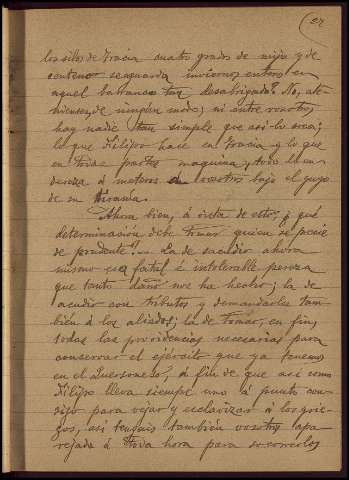 (27
los silos de Tracia cuatro grados de mijo y de
centeno se aguarda inviernos enteros en
aquel barranco tan desabrigado? No, ate-
nienses, de ningún modo; ni entre vosotros
hay nadie tan simple que así lo crea;
lo que Filipo hace en Tracia y lo que
en todas partes maquina, todo lo en-
dereza á meteros á vosotros bajo el yugo
de su tiranía.
Ahora bien, á vista de esto, ¿qué
determinación debe tomar quien se precie
de prudente? La de sacudir ahora
mismo esa fatal é intolerable pereza
que tanto daño nos ha hecho; la de
acudir con tributos y demandarlos tam-
bién á los aliados; la de tomar, en fin,
todas las providencias necesarias para
conservar el ejército que ya tenemos
en el Quersoneso, á fin de que así como
Filipo lleva siempre uno á punto con-
sigo para vejar y esclavizar á los grie-
gos, así tengais también vosotros apa-
rejada á toda hora para socorrerlos